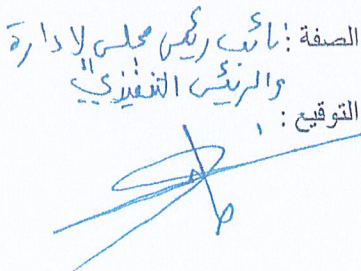 الصفة : نائب رئيس مجلس الإدارة
والرئيس التنفيذي
التوقيع :